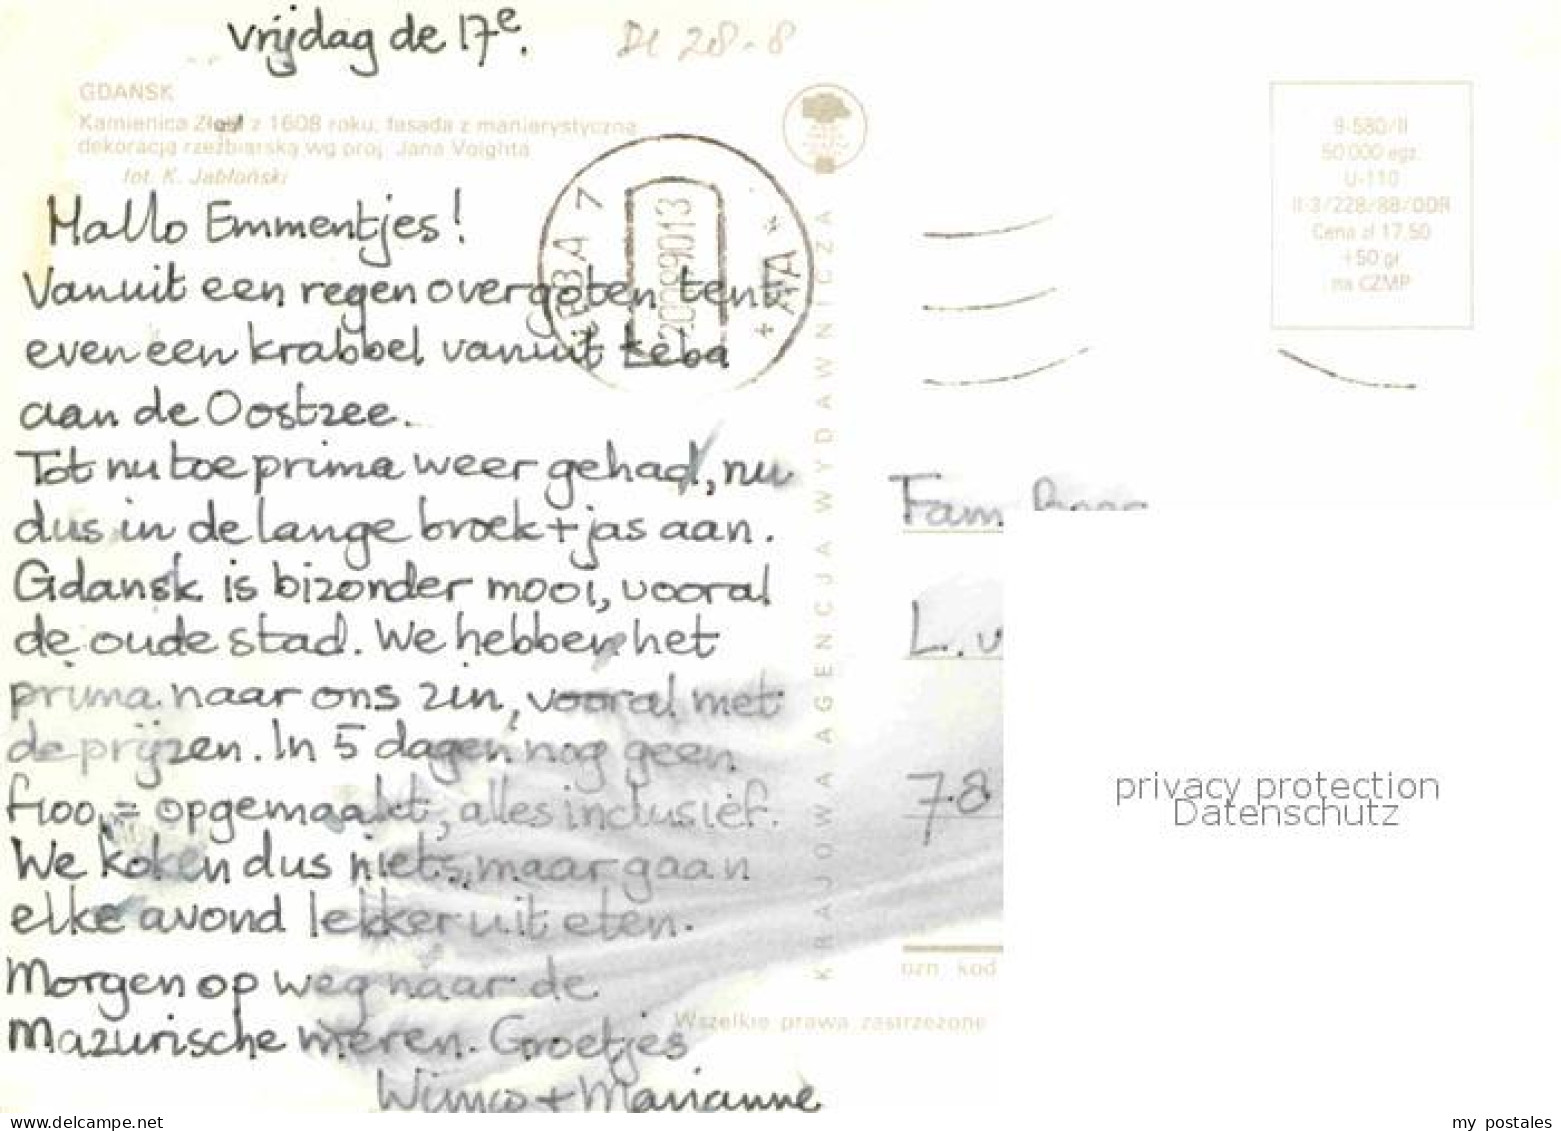 vrijdag de 17e.
Di 28-8
GDAŃSK
Kamienica Złota z 1608 roku, fasada z manierystyczną
dekoracją rzeźbiarską wg proj. Jana Voighta
fot. K. Jabłoński
Hallo Emmentjes!
Vanuit een regen overgoten tent
even een krabbel vanuit Łeba
aan de Oostzee.
Tot nu toe prima weer gehad, nu
dus in de lange broek + jas aan.
Gdansk is bizonder mooi, vooral
de oude stad. We hebben het
prima naar ons zin, vooral met
de prijzen. In 5 dagen nog geen
f100,= opgemaakt, alles inclusief.
We koken dus niets, maar gaan
elke avond lekker uit eten.
Morgen op weg naar de
Mazurische meren. Groetjes
Wimco + Marianne
KRAJOWA AGENCJA WYDAWNICZA
Wszelkie prawa zastrzeżone
9-580/II
50 000 egz.
U-110
II-3/228/88/DDR
Cena zł 17.50
+50 gr
na CZMP
Fam
L. v
78
ozn kod
privacy protection
Datenschutz
my postales
www.delcampe.net